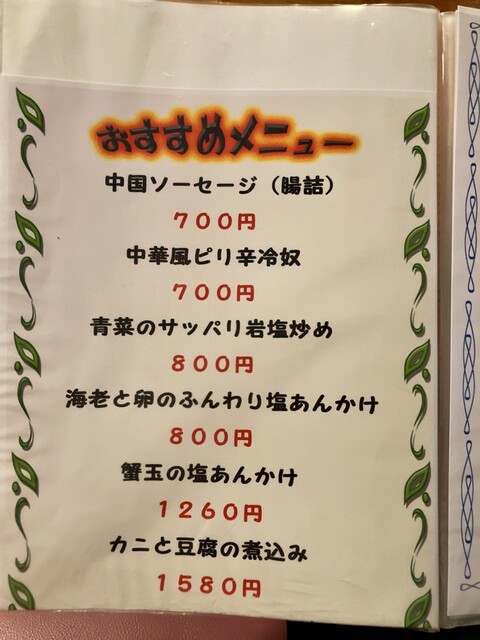 おすすめメニュー
中国ソーセージ（腸詰）
７００円
中華風ピリ辛冷奴
７００円
青菜のサッパリ岩塩炒め
８００円
海老と卵のふんわり塩あんかけ
８００円
蟹玉の塩あんかけ
１２６０円
カニと豆腐の煮込み
１５８０円